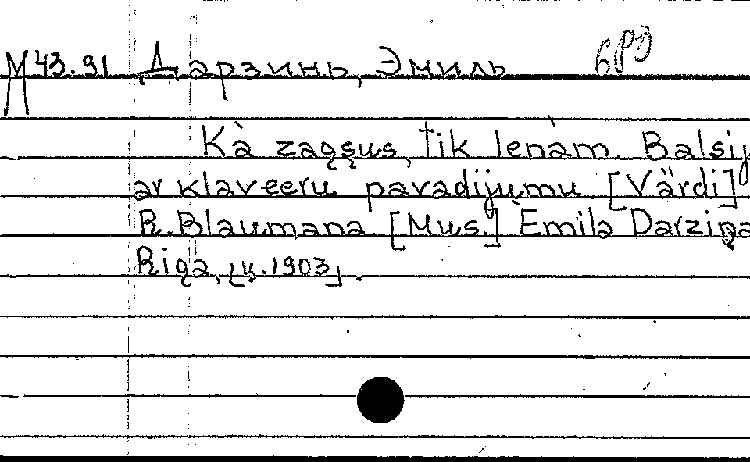 М 43.91 Дарзинь, Эмиль
Kà zagşus, tik lenàm. Balsij
ar klaveeru pavadijumu [Värdi]
R. Blaumaņa [Mus.] Èmila Darziņa
Riga, [ц. 1903].